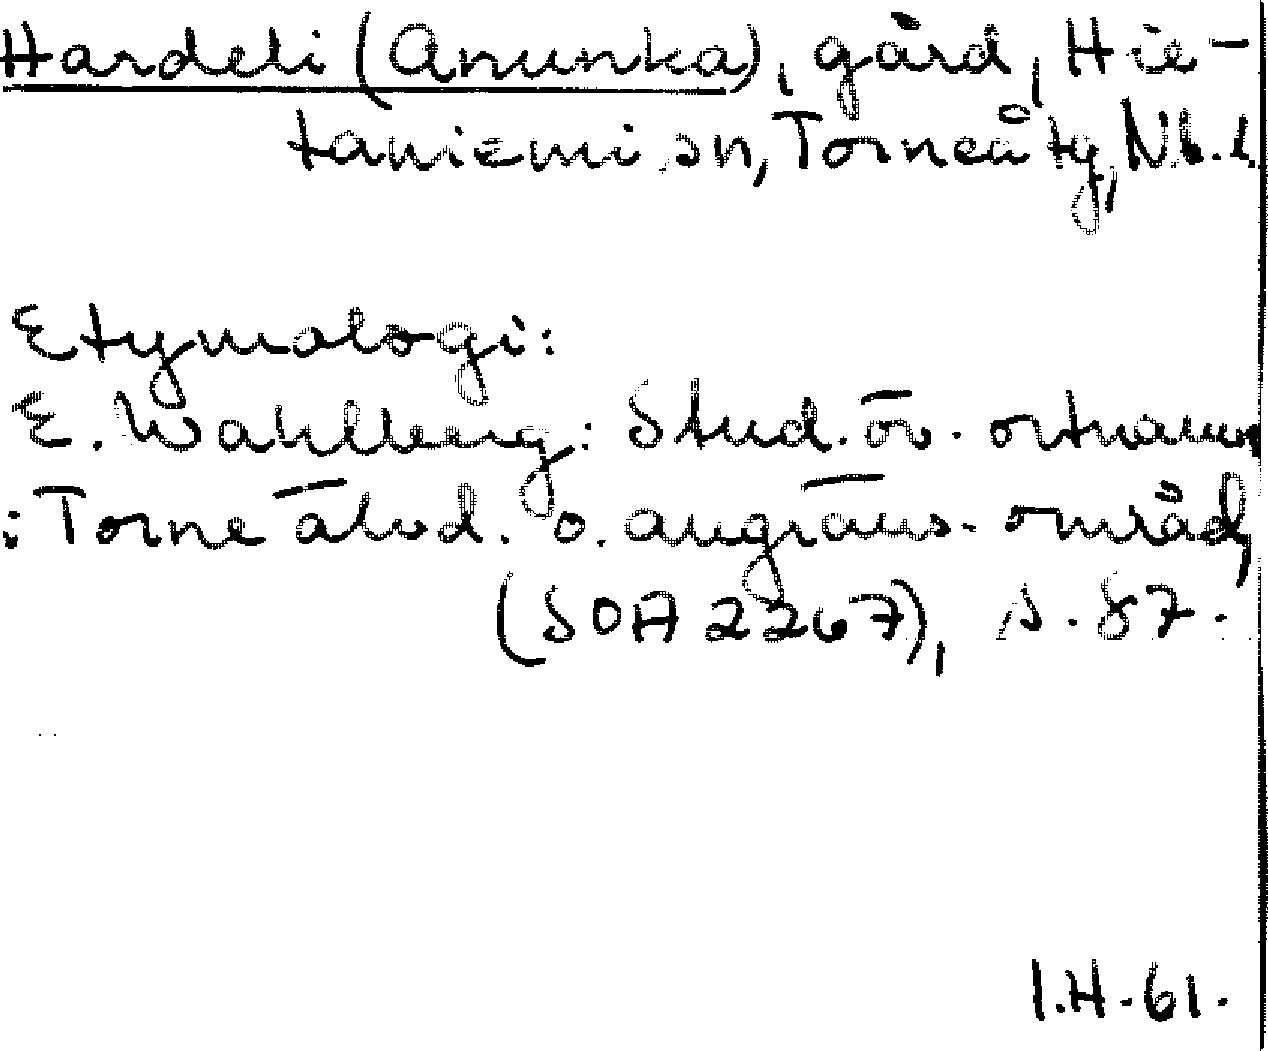 Hardeli (Anunka), gård, Hie-
taniemi sn, Torneå tg, Nb. l.
Etymologi:
E. Wahlberg: Stud. öv. ortnamn
i Torne älvd. o. angräns. område
(SOA 2267), s. 87.
I.H. 61.